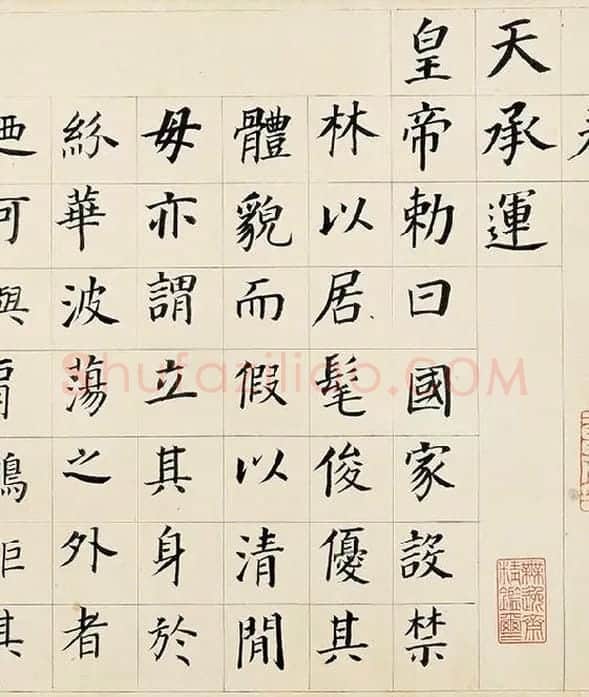 天承運
皇帝勅曰國家設禁
林以居髦俊優其
體貌而假以清閒
毋亦謂立其身於
紛華波蕩之外者
可與其
無逸齋
精鑑璽
Shufaziliao.COM